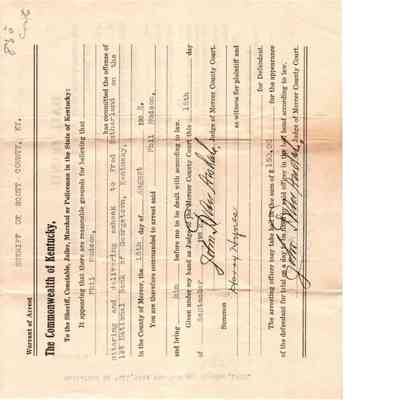 Warrant of Arrest
SHERIFF OF SCOTT COUNTY, KY.
The Commonwealth of Kentucky,
To the Sheriff, Constable, Jailer, Marshal or Policeman in the State of Kentucky:
It appearing that there are reasonable grounds for believing that
Phil Hudson,
has committed the offense of
uttering and delivering to Fred on the
1st National Bank of Georgetown, Kentucky,
in the County of Mercer, the 15th day of August 190
You are therefore commanded to arrest said Phil Hudson,
and bring him before me to be dealt with according to law.
Given under my hand as Judge of the Mercer County Court this 15th day
of September 19
John Judge of Mercer County Court.
Summon Harry Hynes as witness for plaintiff and
for Defendant.
The arresting officer may take bail in the sum of $ 150.00 for the appearance
of the defendant for trial on a day to be fixed by said officer in the bail bond according to law.
John Judge of Mercer County Court.